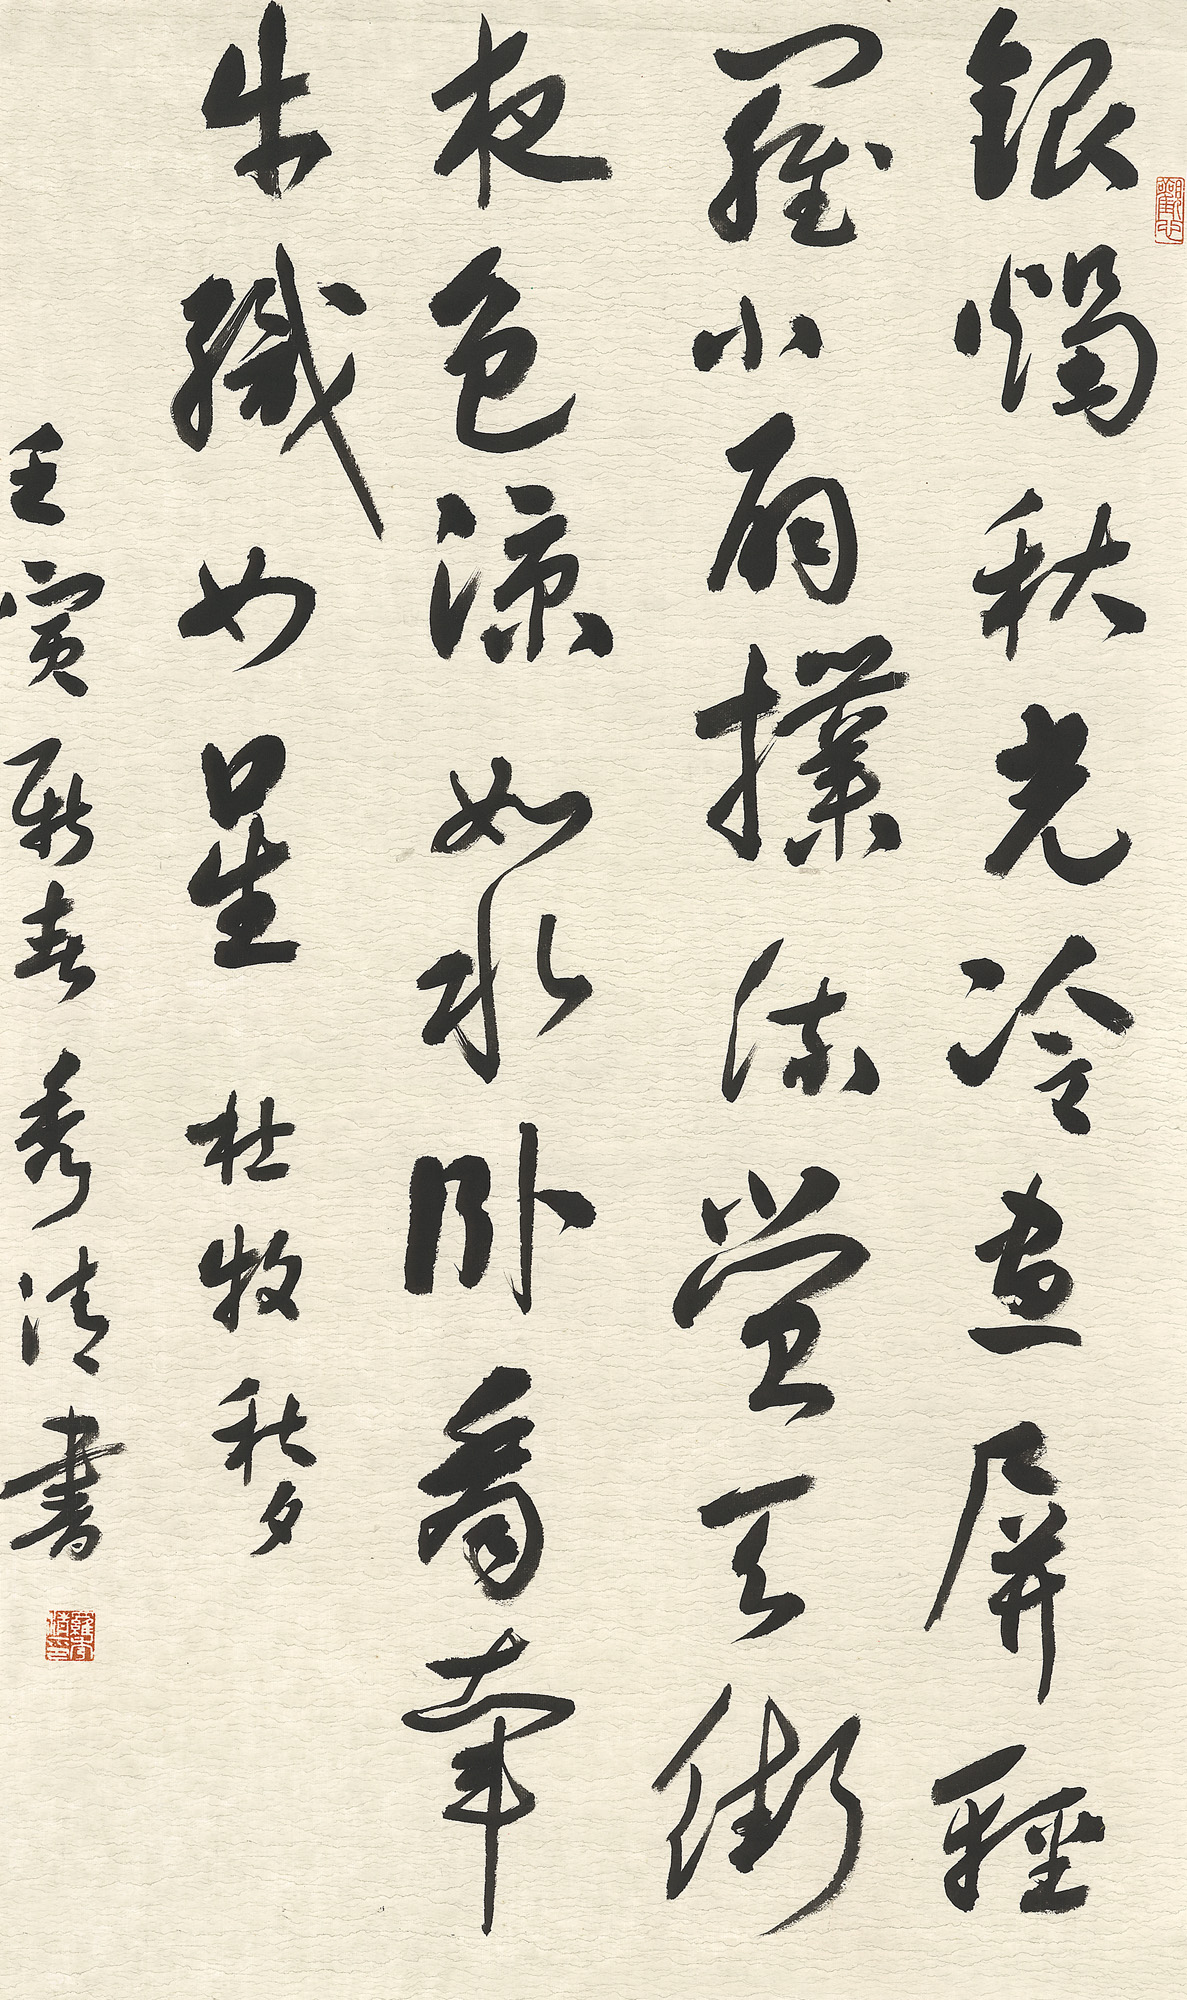 銀燭秋光冷畫屏輕
羅小扇撲流螢天街
夜色涼如水臥看牽
牛織女星 杜牧秋夕
壬寅新春秀清書